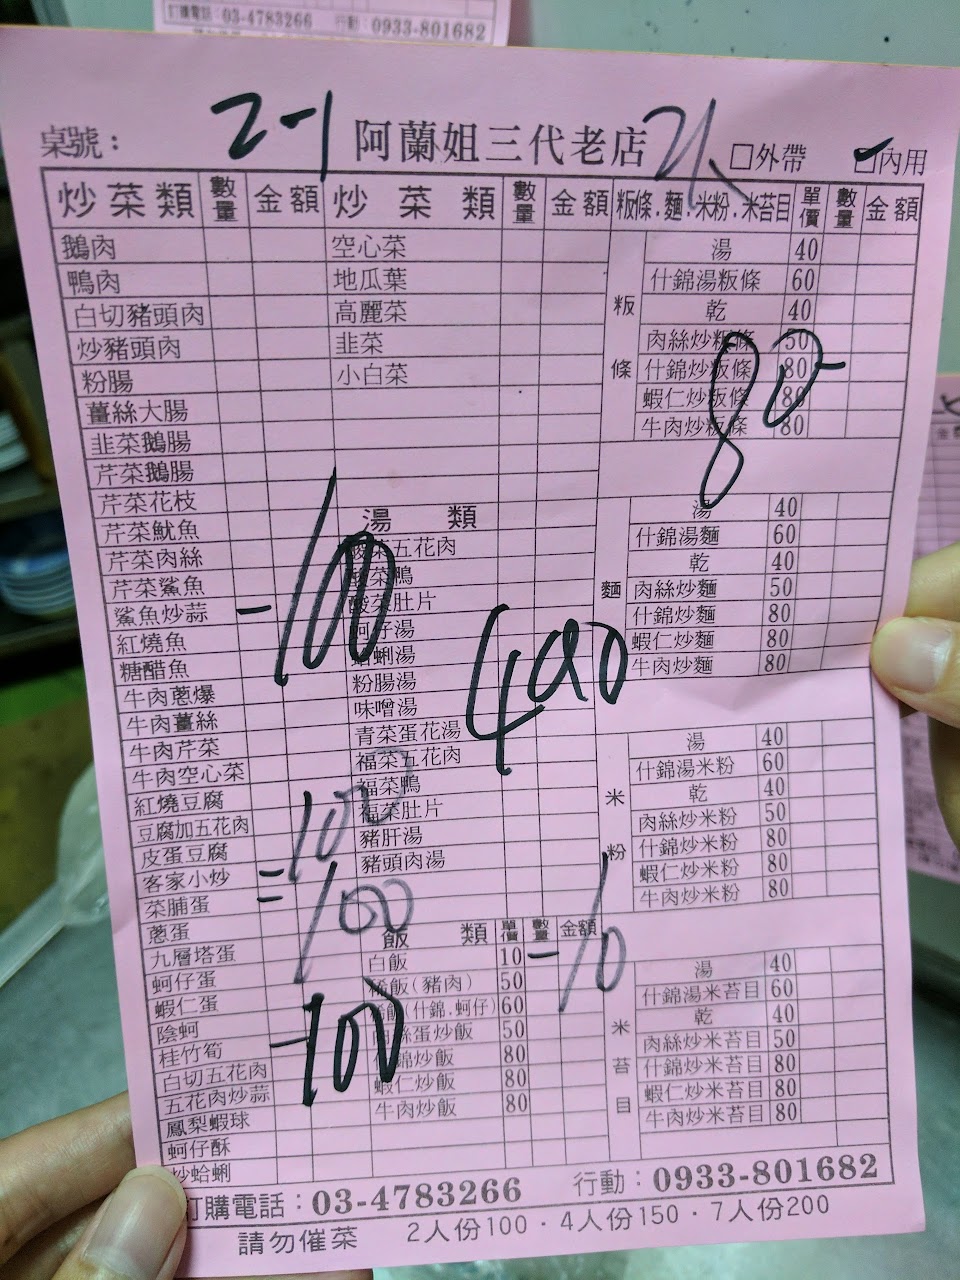 訂購電話：03-4783266 行動：0933-801682
桌號： 2-1 阿蘭姐三代老店 □外帶 ☑內用
炒菜類 數量 金額 炒菜類 數量 金額 粄條．麵．米粉．米苔目 單價 數量 金額
鵝肉
鴨肉
白切豬頭肉
炒豬頭肉
粉腸
薑絲大腸
韭菜鵝腸
芹菜鵝腸
芹菜花枝
芹菜魷魚
芹菜肉絲
芹菜鯊魚
鯊魚炒蒜 - 100
紅燒魚
糖醋魚
牛肉蔥爆
牛肉薑絲
牛肉芹菜
牛肉空心菜
紅燒豆腐
豆腐加五花肉
皮蛋豆腐
客家小炒 - 100
菜脯蛋 - 100
蔥蛋
九層塔蛋
蚵仔蛋
蝦仁蛋
陰蚵
桂竹筍 - 100
白切五花肉
五花肉炒蒜
鳳梨蝦球
蚵仔酥
炒蛤蜊
空心菜
地瓜葉
高麗菜
韭菜
小白菜
湯類
酸菜五花肉
酸菜鴨
酸菜肚片
蚵仔湯
蛤蜊湯
粉腸湯
味噌湯
青菜蛋花湯
福菜五花肉
福菜鴨
福菜肚片
豬肝湯
豬頭肉湯
490
飯類 單價 數量 金額
白飯 10 - 10
稀飯(豬肉) 50
稀飯(什錦.蚵仔) 60
肉絲蛋炒飯 50
什錦炒飯 80
蝦仁炒飯 80
牛肉炒飯 80
粄條
湯 40
什錦湯粄條 60
乾 40
肉絲炒粄條 50
什錦炒粄條 80
蝦仁炒粄條 80
牛肉炒粄條 80
80
麵
湯 40
什錦湯麵 60
乾 40
肉絲炒麵 50
什錦炒麵 80
蝦仁炒麵 80
牛肉炒麵 80
米粉
湯 40
什錦湯米粉 60
乾 40
肉絲炒米粉 50
什錦炒米粉 80
蝦仁炒米粉 80
牛肉炒米粉 80
米苔目
湯 40
什錦湯米苔目 60
乾 40
肉絲炒米苔目 50
什錦炒米苔目 80
蝦仁炒米苔目 80
牛肉炒米苔目 80
訂購電話：03-4783266 行動：0933-801682
請勿催菜 2人份100．4人份150．7人份200